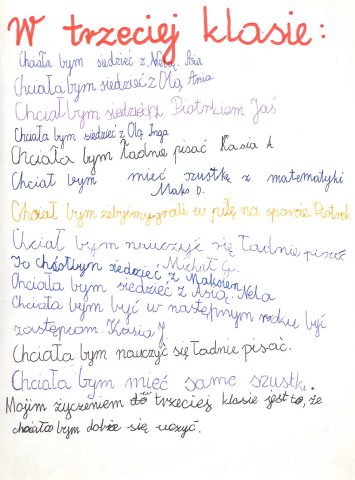 W trzeciej klasie:
Chciała bym siedzieć z Nelą. Asia
Chciała bym siedzieć z Olą Ania
Chciał bym siedzieć z Piotrkiem Jaś
Chciała bym siedzieć z Olą Inga
Chciała bym ładnie pisać Kasia Ł
Chciał bym mieć szustkę z matematyki
Maks D.
Chciał bym żebyśmy grali w piłę na sporcie Piotrek
Chciał bym nauczyć się ładnie pisać
Michał G.
Ja chciałbym siedzieć z Maksem
Chciała bym siedzieć z Asią. Nela
Chciała bym być w następnym roku być
zastępcom. Kasia J.
Chciała bym nauczyć się ładnie pisać.
Chciała bym mieć same szustki.
Mojim życzeniem do trzeciej klasie jest to, że
chciała bym dobże się uczyć.